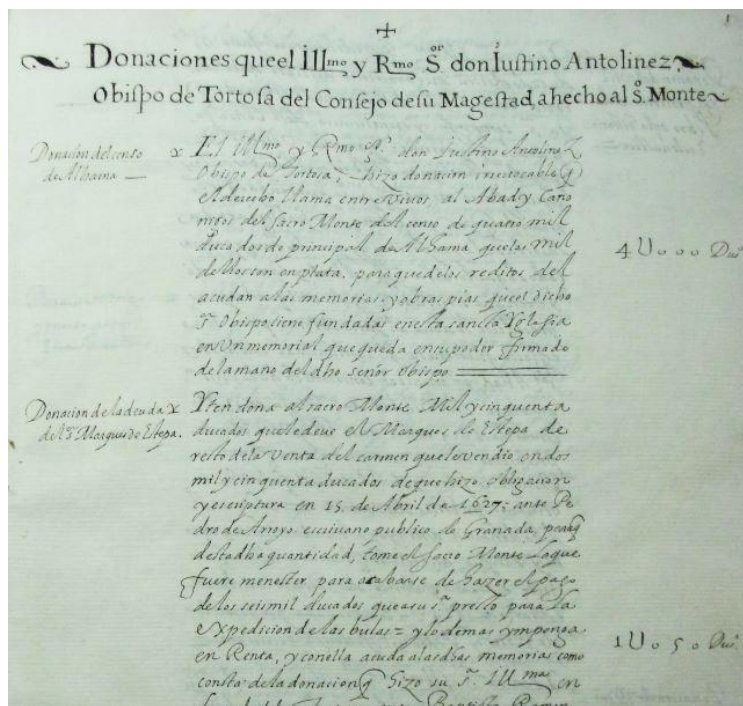 1
Donaciones que el Illmo y Rmo Sor don Iustino Antolinez
Obispo de Tortosa del Consejo de su Magestad, a hecho al So. Monte
Donacion del censo
de Alhama —
El Illmo y Rmo Sr. don Iustino Antolinez
Obispo de Tortosa, hizo donacion irrevocable q
el derecho llama entre vivos al Abad y Cano
nigos del sacro Monte del censo de quatro mil
ducados de principal de Alhama que los mil
dellos son en plata. para que de los reditos del
acudan a las memorias y obras pias que el dicho
sr Obispo tiene fundadas en esta sancta Yglesia
en Un memorial que queda en su poder firmado
de la mano del dho señor obispo
4U000 Dus
Donacion de la deuda
del Sr Marques de Estepa.
Yten dona al sacro Monte Mil y cinquenta
ducados que le deve el Marques de Estepa de
resto de la Venta del carmen que le vendio en dos
mil y cinquenta ducados de que hizo obligacion
y escriptura en 15 de Abril de 1627: ante Pe
dro de Arroyo escrivano publico de Granada, para q
desta dha quantidad, tome el sacro Monte Lo que
fuere menester para acabarse de hazer el pago
de los seis mil ducados que a su sa presto para La
expedicion de las bulas = y lo demas ymponga
en Renta, y con ella acuda a las dhas memorias como
consta de la donacion q hizo su sa. Illma en
1U050 Dus